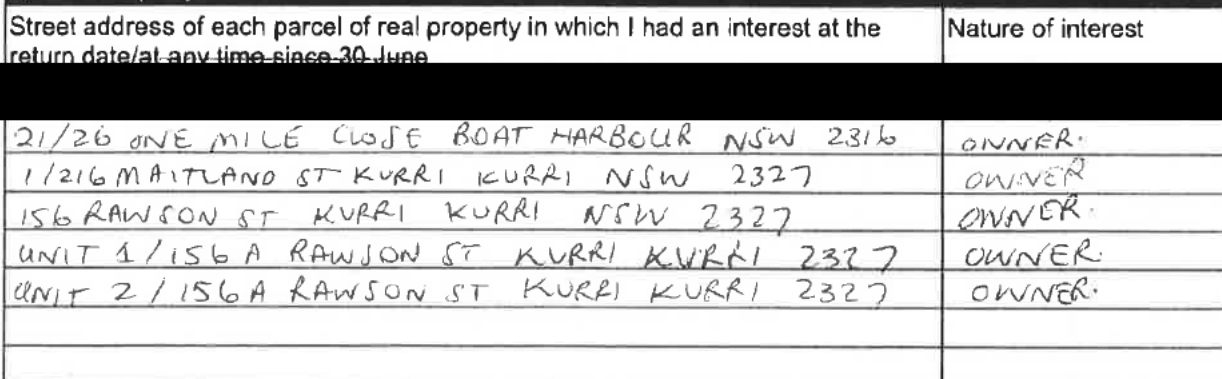 Street address of each parcel of real property in which I had an interest at the
return date/at any time since 30 June
Nature of interest
21/26 ONE MILE CLOSE BOAT HARBOUR NSW 2316 OWNER.
1/216 MAITLAND ST KURRI KURRI NSW 2327 OWNER
156 RAWSON ST KURRI KURRI NSW 2327 OWNER.
UNIT 1/156 A RAWSON ST KURRI KURRI 2327 OWNER.
UNIT 2/156A RAWSON ST KURRI KURRI 2327 OWNER.